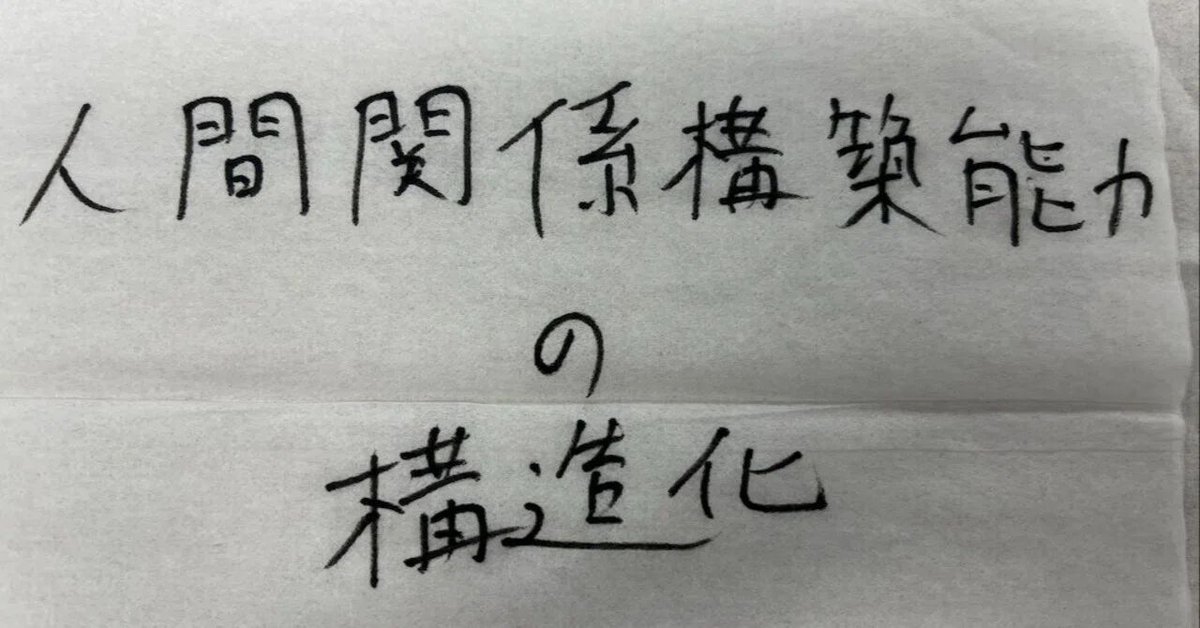 人間関係構築能力
の
構造化